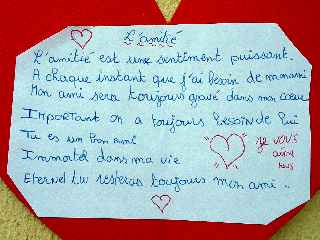 L'amitié
L'amitié est une sentiment puissant.
A chaque instant que j'ai besoin de mon ami
Mon ami sera toujours gravé dans mon coeur
Important on a toujours besoin de lui
Tu es un bon ami
Immortel dans ma vie
Eternel tu resteras toujours mon ami..
je vous
aime
tous